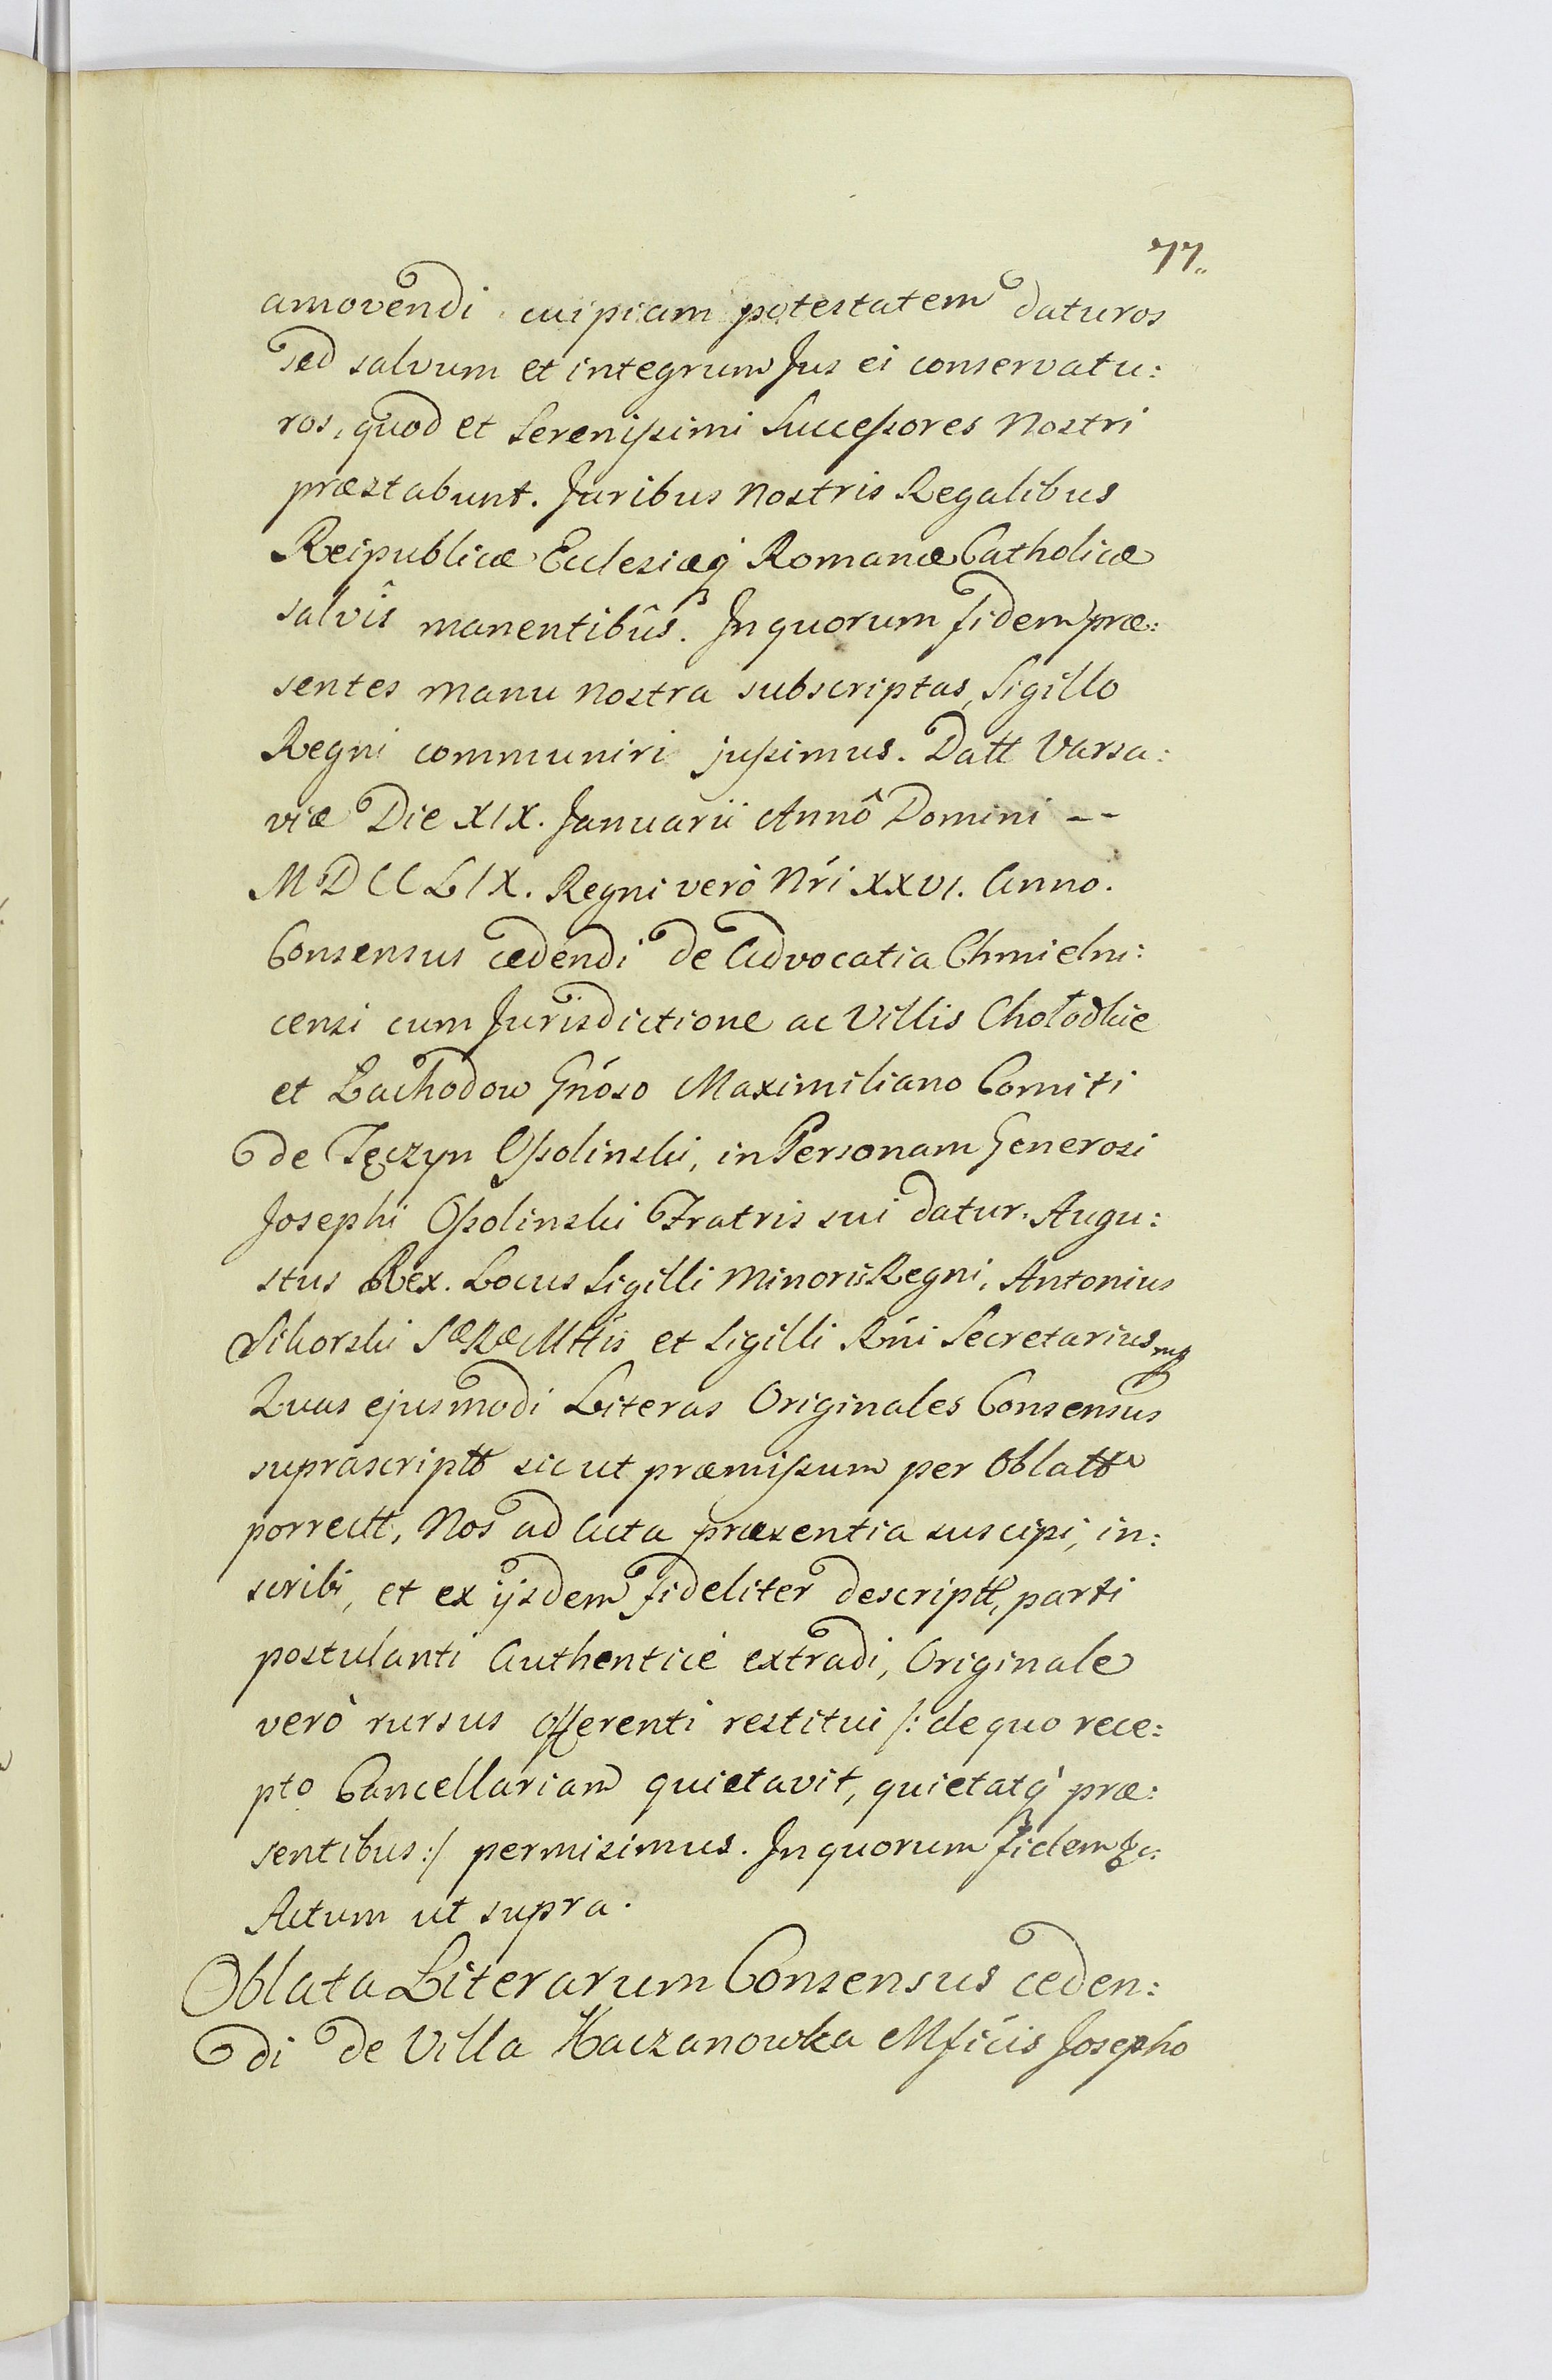 77.
amovendi cuipiam potestatem daturos
sed salvum et integrum Jus ei conservatu:
ros, quod et Serenissimi Successores Nostri
præstabunt. Juribus Nostris Regalibus
Reipublicæ Ecclesiæq́ Romanæ Catholicæ
salvîs manentibûs. In quorum fidem præ:
sentes manu nostra subscriptas, Sigillo
Regni communiri jussimus. Datt Varsa:
viæ Die XIX. Januarii Annô Domini --
MDCCLIX. Regni verò Nŕi XXVI. Anno.
Consensus cedendi de Advocatia Chmielni:
censi cum Jurisdictione ac Villis Chołodkie
et Lachodow Gńoso Maximiliano Comiti
de Tęczyn Ossolinski, in Personam Generosi
Josephi Ossolinski Fratris sui datur. Augu:
stus Rex. Locus Sigilli Minoris Regni, Antonius
Sikorski SæRæMttis et Sigilli Rńi Secretarius mp
Quas ejusmodi Literas Originales Consensus
suprascriptt sic ut præmissum per Oblatt
porrectt, Nos ad Acta præsentia suscipi, in:
scribi, et ex ijsdem fideliter descriptt, parti
postulanti Authenticè extradi, Originale
verò rursus offerenti restitui /: de quo rece:
pto Cancellariam quietavit, quietatq́ præ:
sentibus :/ permisimus. In quorum fidem &c:
Actum ut supra.
Oblata Literarum Consensus ceden:
di de Villa Kaczanowka Mfićis Josepho